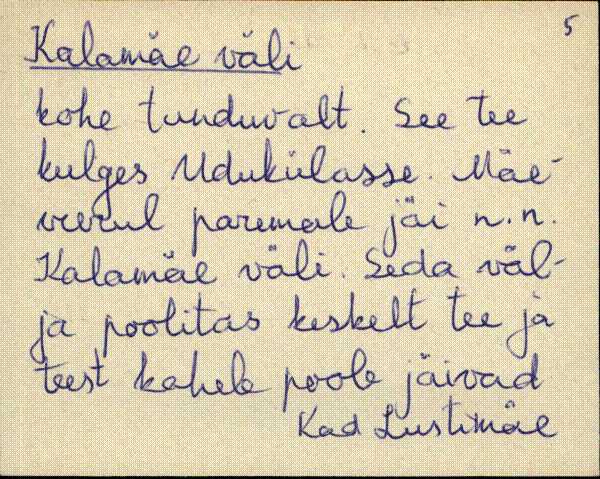 5
Kalamäe väli
kohe tunduvalt. See tee
kulges Udukülasse. Mäe-
veerul paremale jäi n.n.
Kalamäe väli. Seda väl-
ja poolitas keskelt tee ja
teest kahele poole jäivad
Kad Lustimäe